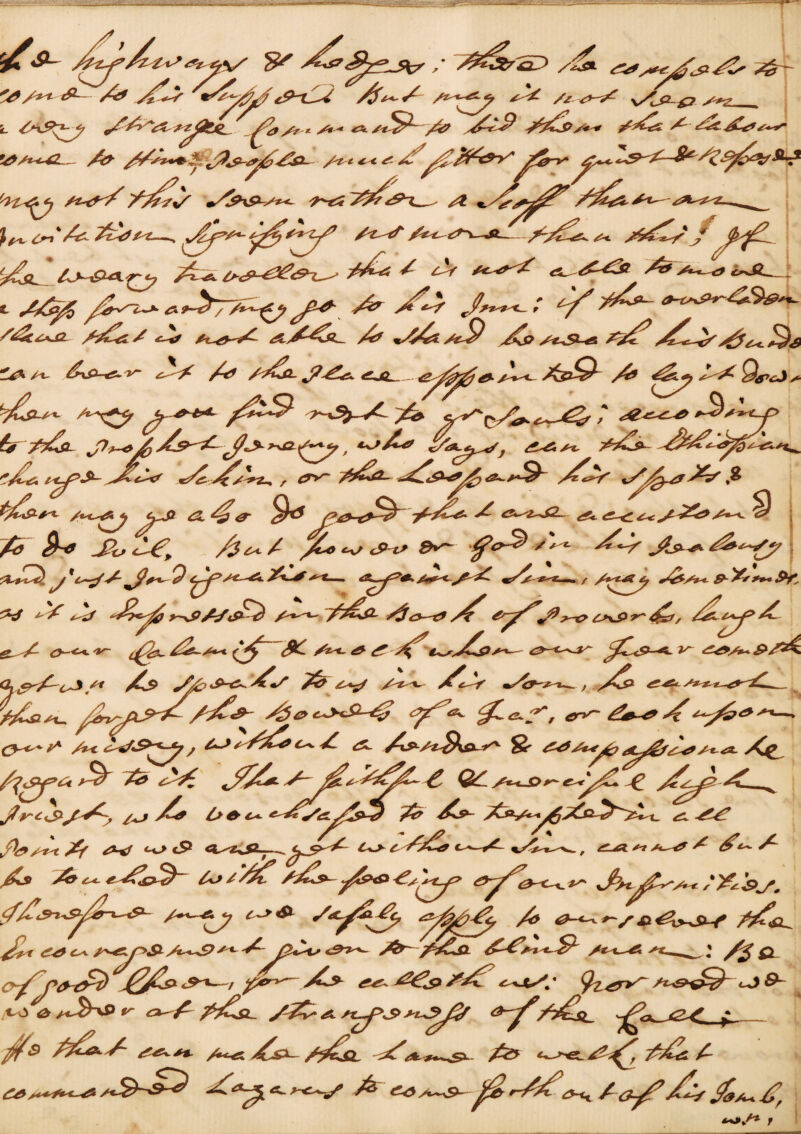 the highways & hedges; these he compels to
come to his Supper. But may it not seem
a very strange Command to bid them that labour
come to Him; People much fitter for quiet & Repose?
may not this seem rather a Scoff than an
Invitation signifying no more than this; If
the weary traveller that is not able to move
a step forward, may go to his Inn: if the overladen
slave that is not able to stand beneath his Burde
can bear it to the Place appointed to lay it down
then may you find rest to yr Souls; according
to the Prophet Jeremy, who says, can the Ethiopian
change his Schin, or the Leopard his spots?
then may ye also do good that are accustom'd
to do Evil. But however God in his Jealousy
and just Indignation against Sin, may sometimes,
as it is Expressed in the Book of Proverbs, laugh
at our Calamity & mock when our Fear cometh
yet wn he speaks to us in his Son, he cannot
then forget the Bowels of a Far, or look upon
our misery, without a tender & compassionate
Regard to it. That faithful & merciful high
Priest, who vouchsafed to be tempted in all
Points as we are, yet without Sin, cannot but
be touched with the feeling of our Infirmities.
Therefore may we safely apply to ourselves the
Encouragement given to the blind man: Be
of good Cheer, for he calleth us: Nor need we
wonder at the strangeness of the Call;
He that can make the Lame to walk, that
commanded Lazarus to come forth out of his Tomb,
wn,